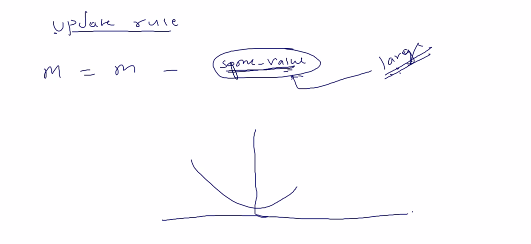 update rule
m = m - some-value
large